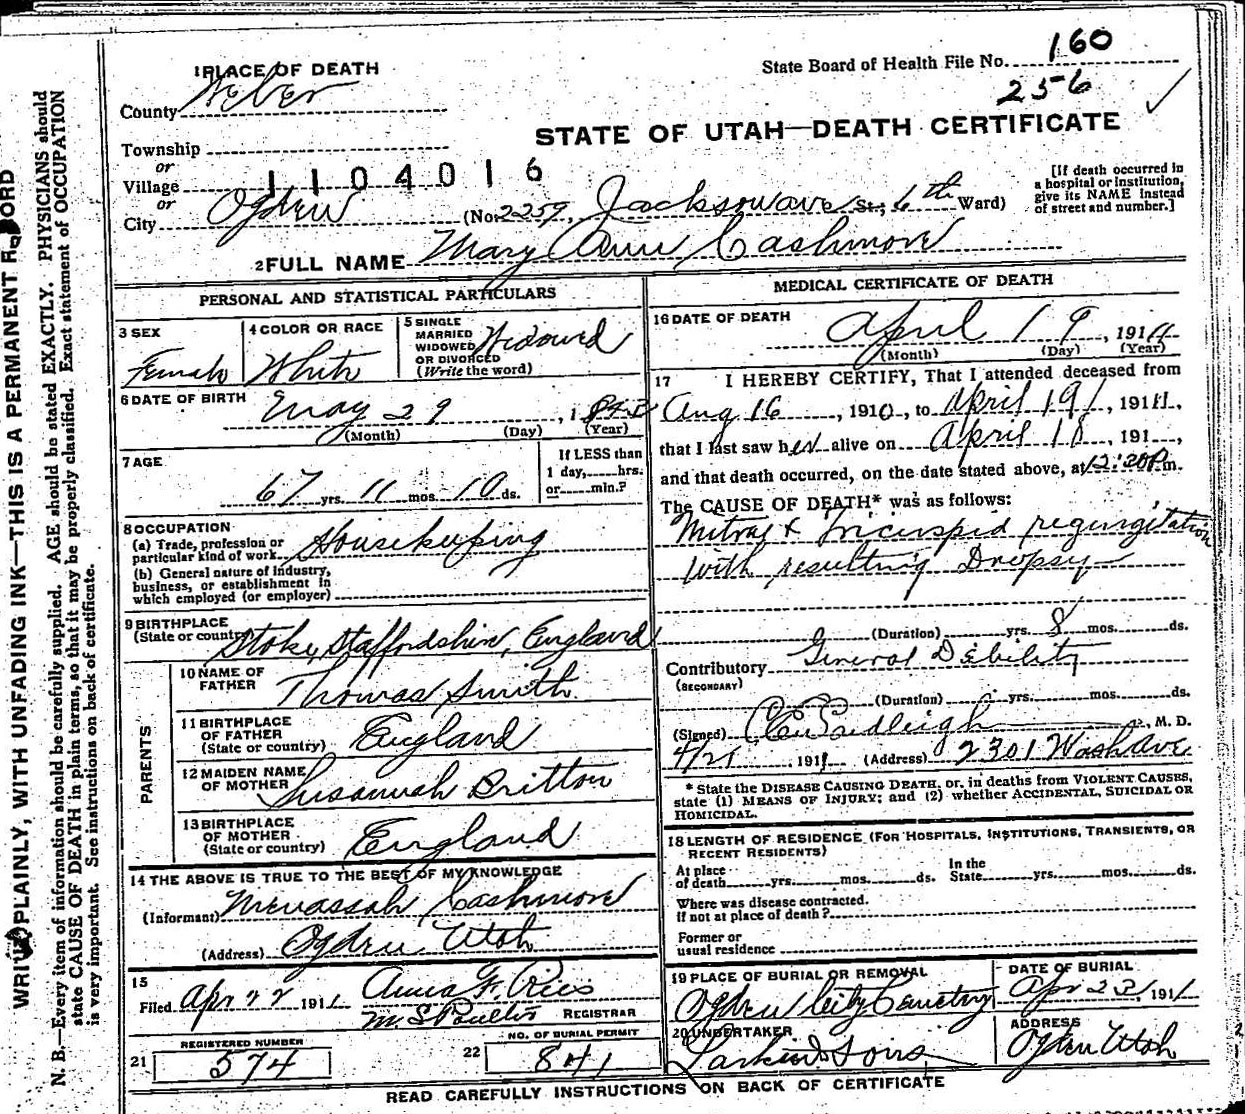 WRITE PLAINLY, WITH UNFADING INK—THIS IS A PERMANENT RECORD
N. B.—Every item of information should be carefully supplied. AGE should be stated EXACTLY. PHYSICIANS should
state CAUSE OF DEATH in plain terms, so that it may be properly classified. Exact statement of OCCUPATION
is very important. See instructions on back of certificate.
1 PLACE OF DEATH
State Board of Health File No. 160
256
County Weber
STATE OF UTAH—DEATH CERTIFICATE
Township
or
Village 1104016
or
City Ogden (No. 2259 Jackson ave St.; 6th Ward)
[If death occurred in
a hospital or institution,
give its NAME instead
of street and number.]
2 FULL NAME Mary Ann Cashmore
PERSONAL AND STATISTICAL PARTICULARS
3 SEX Female
4 COLOR OR RACE White
5 SINGLE
MARRIED
WIDOWED
OR DIVORCED
(Write the word) Widowed
6 DATE OF BIRTH May 29, 1843
(Month) (Day) (Year)
7 AGE 67 yrs. 11 mos. 10 ds.
If LESS than
1 day, hrs.
or min.?
8 OCCUPATION
(a) Trade, profession or
particular kind of work Housekeeping
(b) General nature of industry,
business, or establishment in
which employed (or employer)
9 BIRTHPLACE
(State or country) Stoke, Staffordshire, England
PARENTS
10 NAME OF
FATHER Thomas Smith
11 BIRTHPLACE
OF FATHER
(State or country) England
12 MAIDEN NAME
OF MOTHER Susannah Britton
13 BIRTHPLACE
OF MOTHER
(State or country) England
14 THE ABOVE IS TRUE TO THE BEST OF MY KNOWLEDGE
(Informant) Menassah Cashmore
(Address) Ogden Utah
15
Filed Apr 22 1911 Anna F. Ries
M. S. Poulter REGISTRAR
REGISTERED NUMBER
21 574
NO. OF BURIAL PERMIT
22 841
MEDICAL CERTIFICATE OF DEATH
16 DATE OF DEATH
April 19, 1911
(Month) (Day) (Year)
17 I HEREBY CERTIFY, That I attended deceased from
Aug 16, 1910, to April 19, 1911,
that I last saw her alive on April 18, 191 ,
and that death occurred, on the date stated above, at 12:20 P m.
The CAUSE OF DEATH* was as follows:
Mitral & Tricuspid regurgitation
with resulting Dropsy
(Duration) yrs. 8 mos. ds.
Contributory General Debility
(SECONDARY)
(Duration) yrs. mos. ds.
(Signed) M. D.
4/21, 1911 (Address) 2301 Wash Ave.
* State the DISEASE CAUSING DEATH, or, in deaths from VIOLENT CAUSES,
state (1) MEANS OF INJURY; and (2) whether ACCIDENTAL, SUICIDAL OR
HOMICIDAL.
18 LENGTH OF RESIDENCE (FOR HOSPITALS, INSTITUTIONS, TRANSIENTS, OR
RECENT RESIDENTS)
At place
of death yrs. mos. ds.
In the
State yrs. mos. ds.
Where was disease contracted.
If not at place of death?
Former or
usual residence
19 PLACE OF BURIAL OR REMOVAL
Ogden City Cemetery
DATE OF BURIAL
Apr 23, 1911
20 UNDERTAKER
Larkin & Sons
ADDRESS
Ogden Utah
READ CAREFULLY INSTRUCTIONS ON BACK OF CERTIFICATE